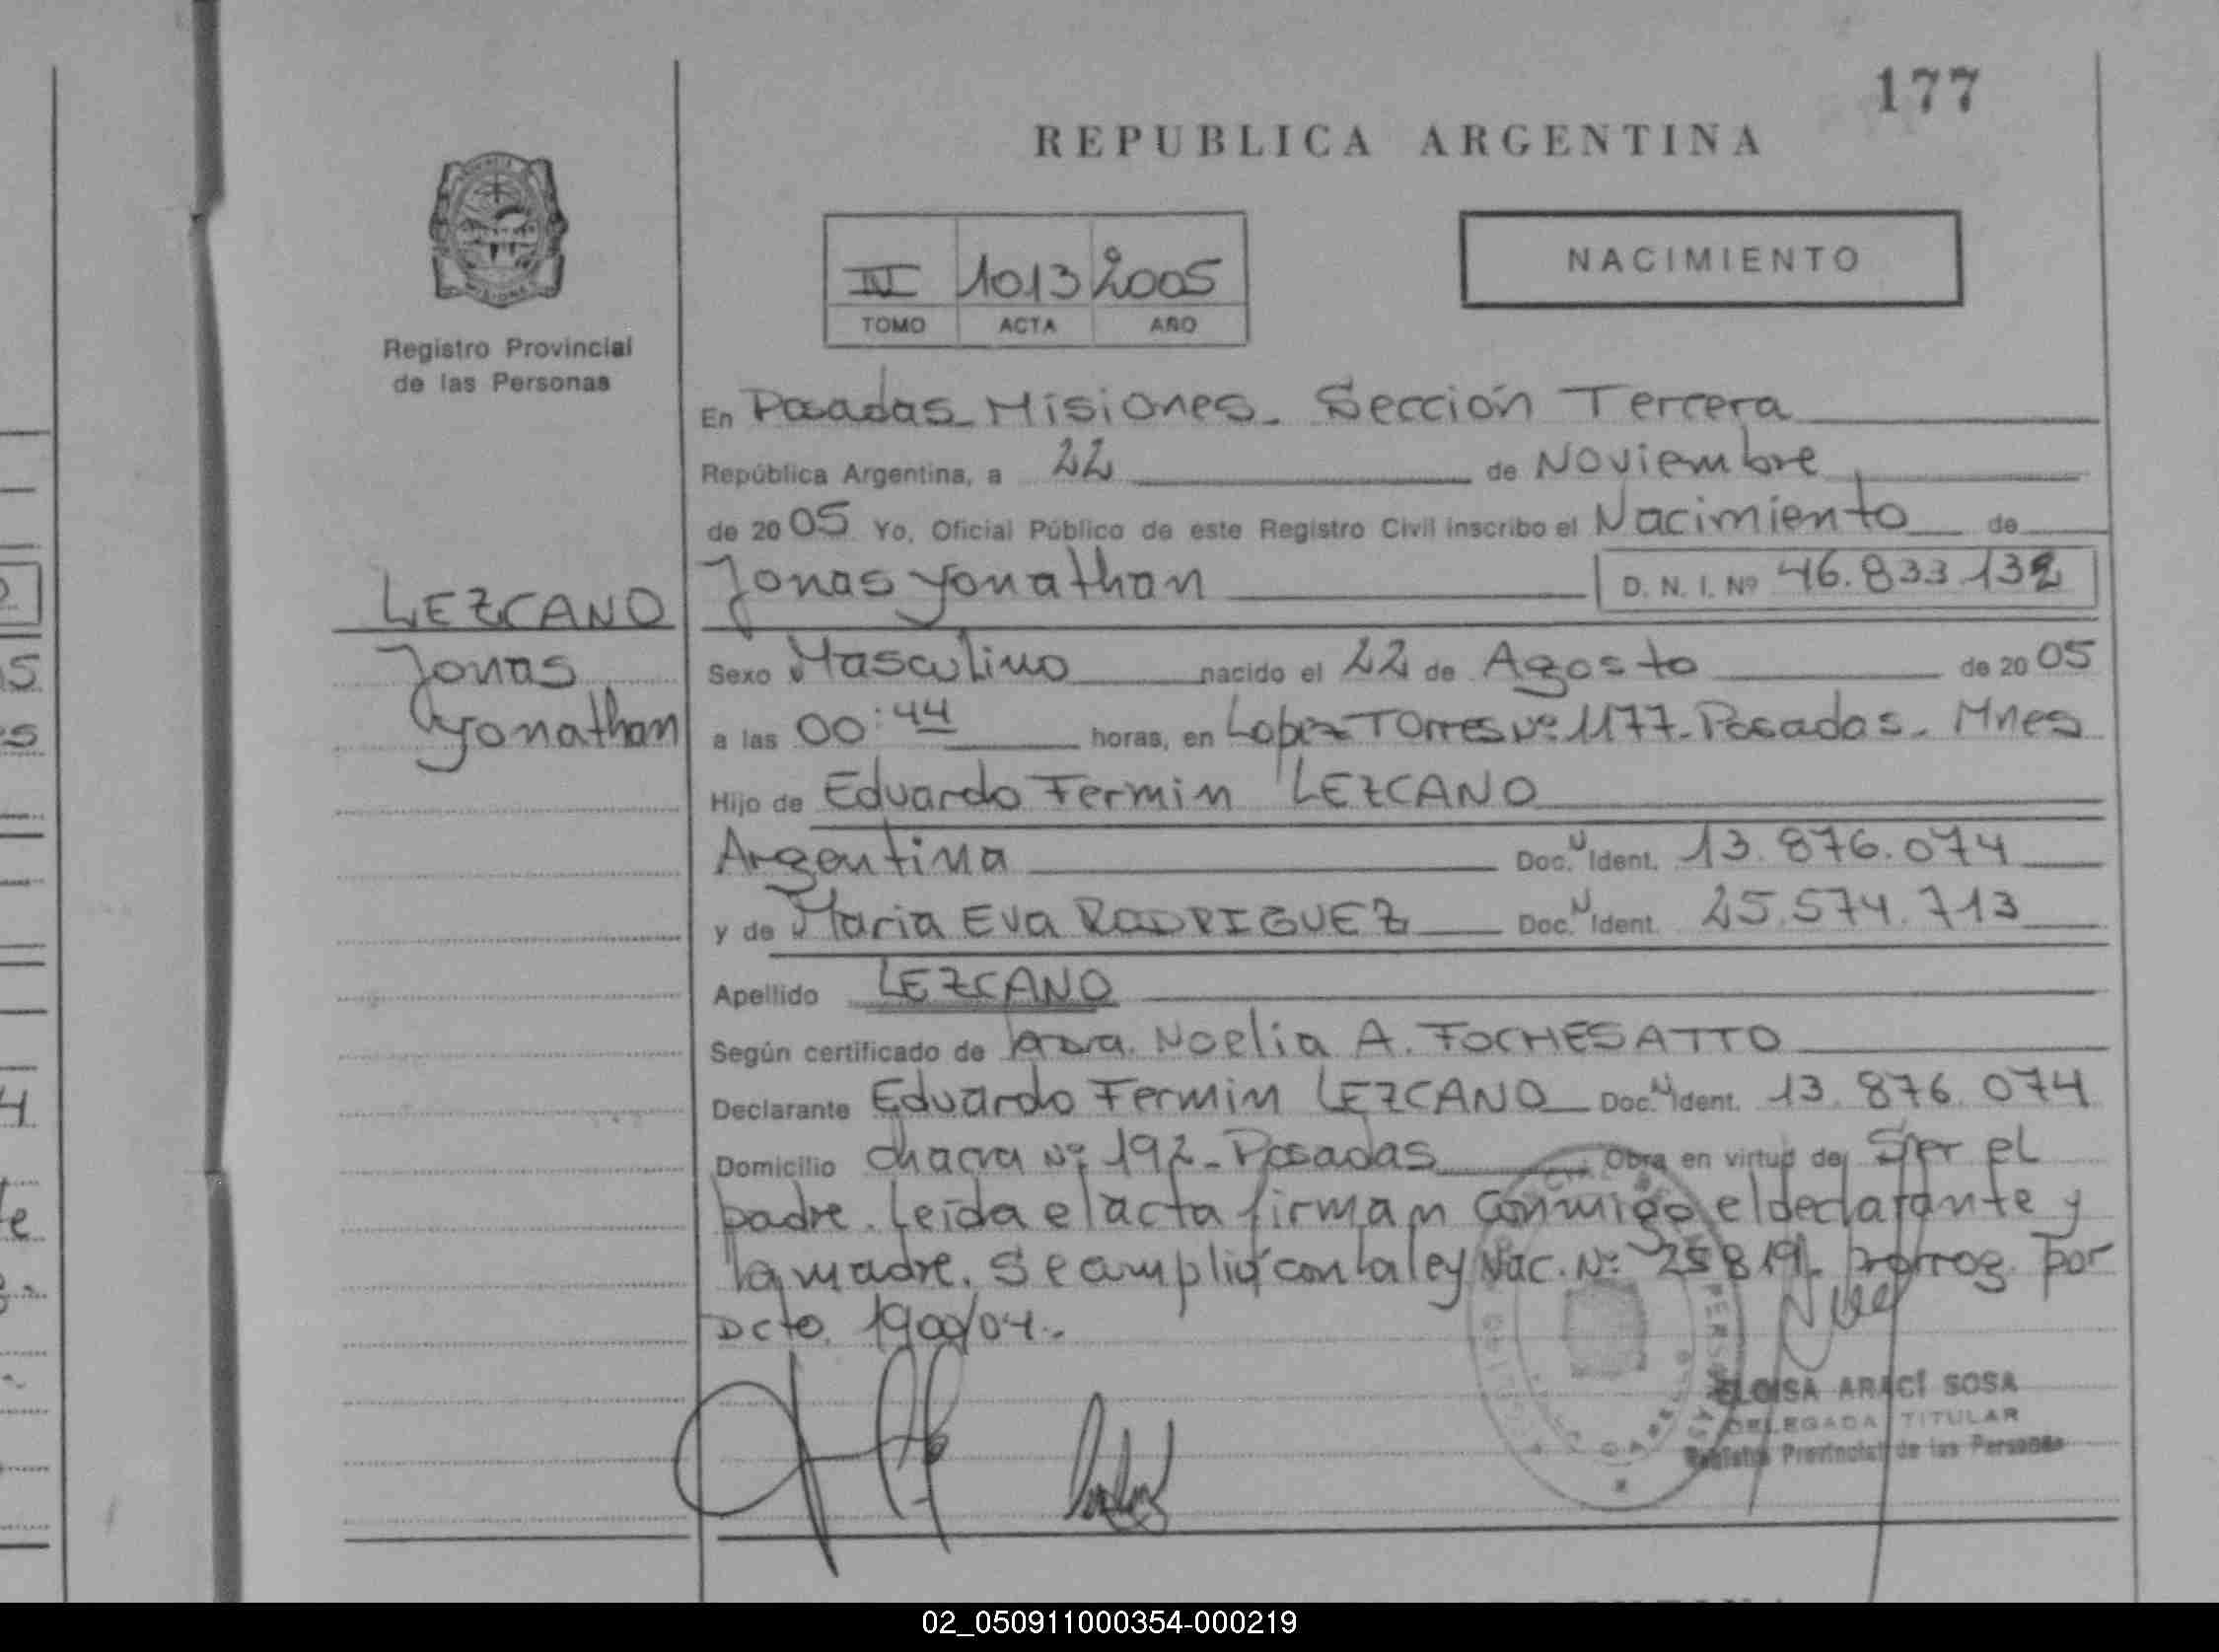 177
REPUBLICA ARGENTINA
NACIMIENTO
IV 1013 2005
TOMO ACTA AÑO
Registro Provincial
de las Personas
En Posadas - Misiones - Sección Tercera
República Argentina, a 22 de Noviembre
de 2005 Yo, Oficial Público de este Registro Civil inscribo el Nacimiento de
Jonas Yonathan D. N. I. Nº 46.833.132
LEZCANO
Jonas
Yonathan
Sexo Masculino nacido el 22 de Agosto de 2005
a las 00:44 horas, en Lopez Torres Nº 1177 - Posadas - Mnes
Hijo de Eduardo Fermin LEZCANO
Argentina Doc. N Ident. 13.876.074
y de Maria Eva RODRIGUEZ Doc. N Ident. 25.574.713
Apellido LEZCANO
Según certificado de Noelia A. FOCHESATTO
Declarante Eduardo Fermin LEZCANO Doc. N Ident. 13.876.074
Domicilio chacra Nº 192 - Posadas Obra en virtud de Ser el
padre. Leida el acta firman conmigo el declarante y
la madre. Se amplió con la ley Nac. Nº 25819 prorrog. por
Dcto. 1900/04.-
ELOISA ARACÍ SOSA
DELEGADA TITULAR
Registro Provincial de las Personas
02_050911000354-000219